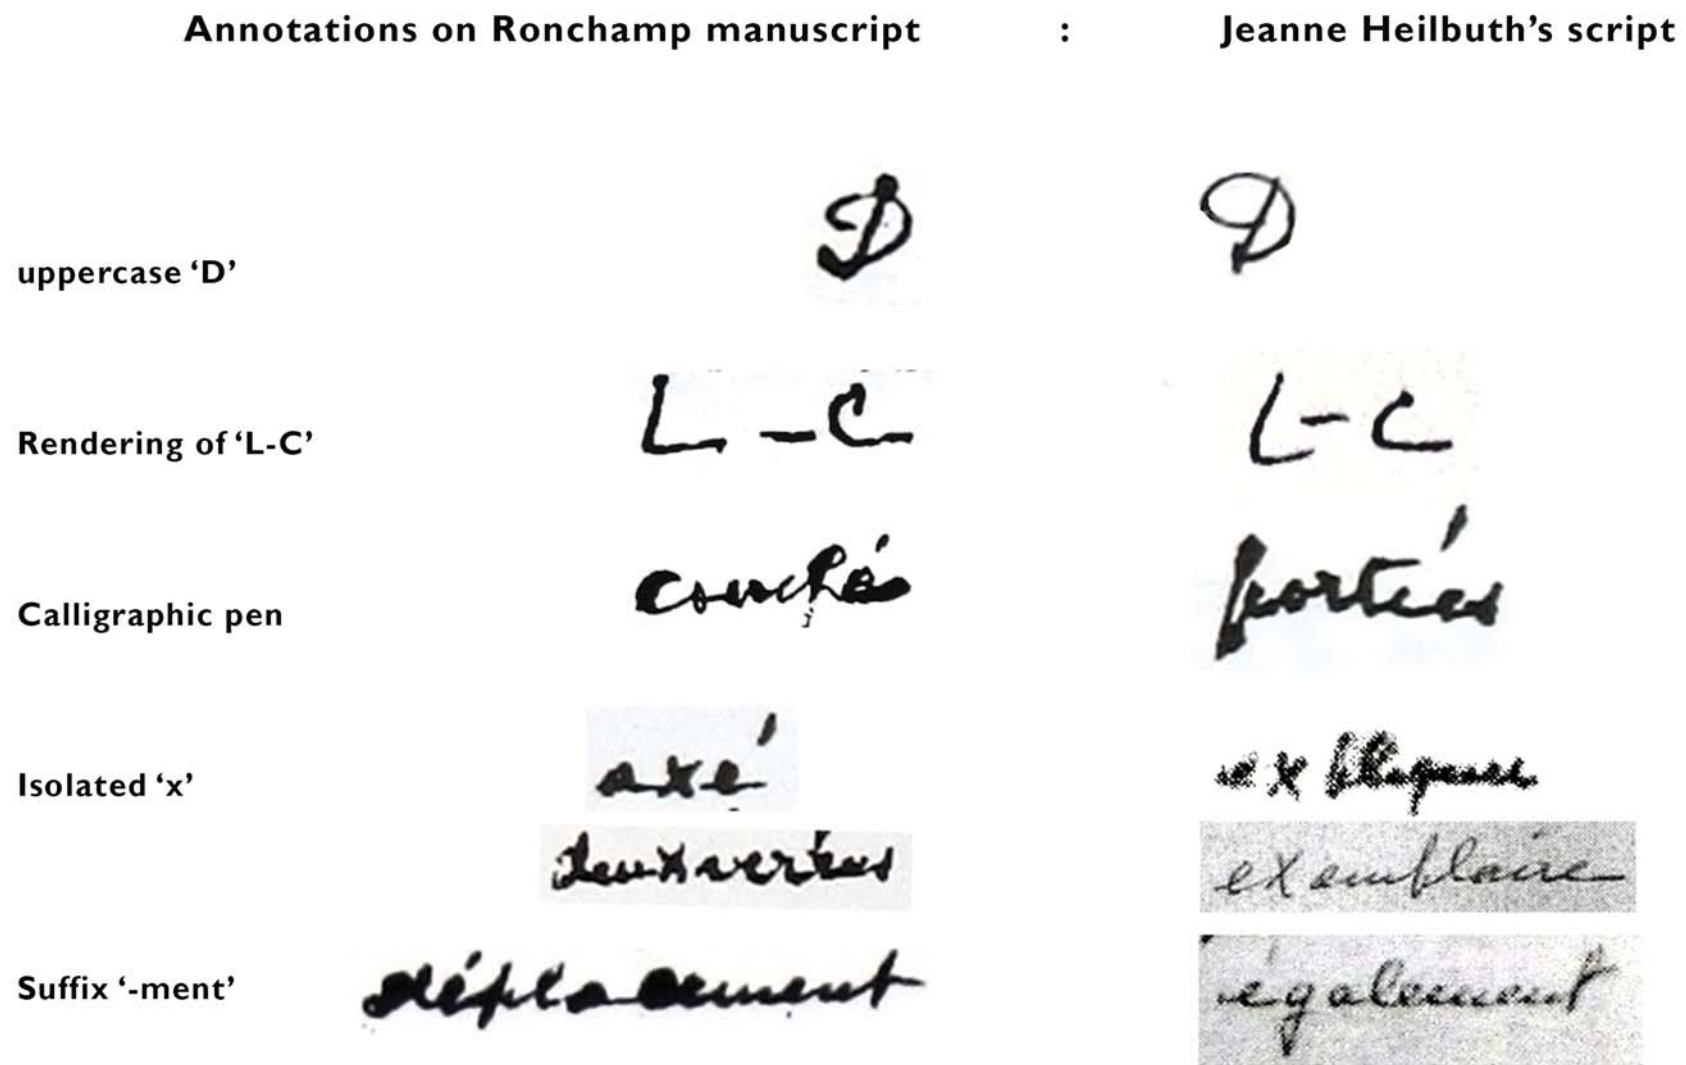 Annotations on Ronchamp manuscript : Jeanne Heilbuth's script
uppercase ‘D’ D D
Rendering of ‘L-C’ L-C L-C
Calligraphic pen couchés portées
Isolated ‘x’ axé expliquer
deux exemplaire
Suffix ‘-ment’ déplacement également